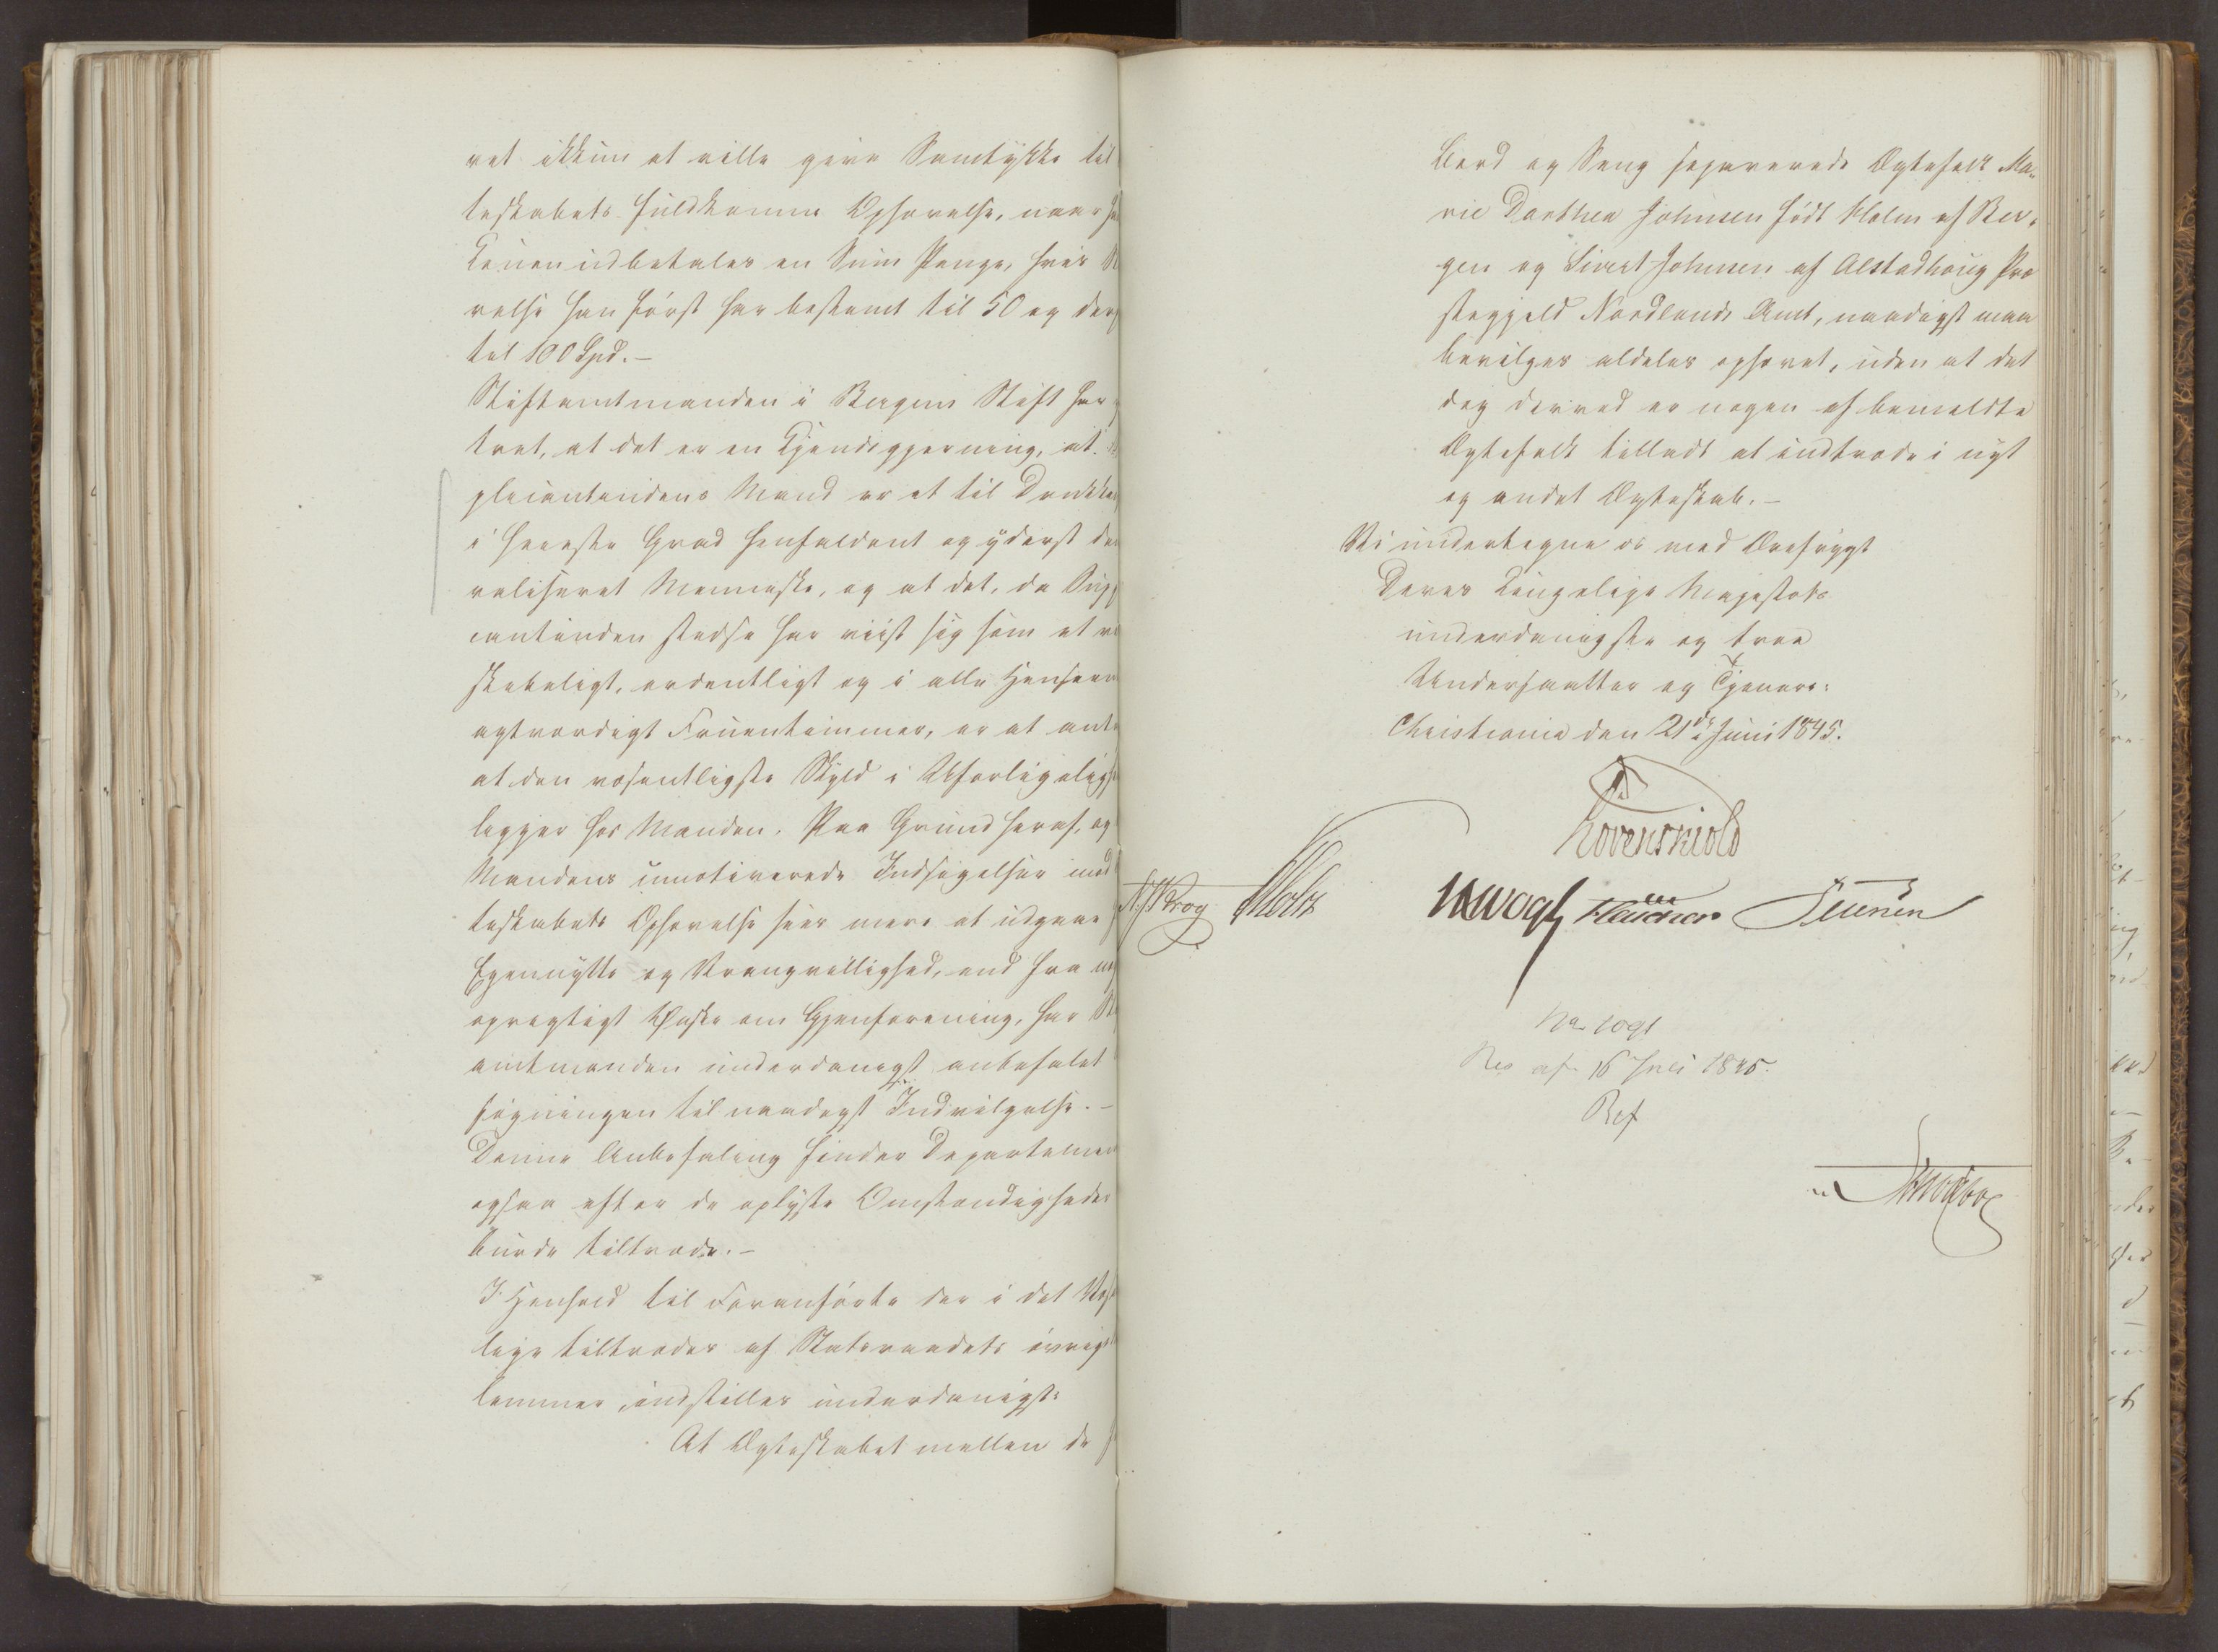 ret ikkun at ville give Samtykke til
teskabets fuldkomne Ophævelse, naar
Konen udbetaler en Sum Penge, hvis
relse han først har bestemt til 50 og
til 100 Spd.-
Stiftamtmanden i Bergens Stift har
tret, at det er en Kjendsgjerning, at
plicantindens Mand er et til Drukken
i høieste Grad henfaldent og yderst de
raliseret Menneske, og at det, da Supp
cantinden stedse har viist sig som et
skabeligt, ordentligt og i alle Henseen
agtværdigt Fruentimmer, er at ant
at den væsentligste Skyld i Uforligelig
ligger hos Manden. Paa Grund heraf, og
Mandens umotiverede Indsigelser mod
teskabets Ophævelse sees mere at udgaae
Egennytte og Vrangvillighed, end fra
oprigtigt Ønske om Gjenforening, har
amtmanden underdanigst anbefalet
søgningen til naadigst Indvilgelse.-
Denne Anbefaling finder Departemen
ogsaa efter de oplyste Omstændigheder
burde tiltræde.-
I Henhold til Foranførte der i det
lige tiltrædes af Statsraadets øvrige
lemmer, indstilles underdanigst:
At Ægteskabet mellem de
Bord og Seng separerede Ægtefolk Ma-
rie Dorthea Johnsen født Holm af Ber-
gen og Sivert Johnsen af Alstadhoug Præ
stegjeld Nordlands Amt, naadigst maa
bevilges aldeles ophævet, uden at det
dog derved er nogen af bemeldte
Ægtefolk tilladt at indtræde i nyt
og andet Ægteskab.-
Vi undertegne os med Ærefrygt
Deres Kongelige Majestæts
underdanigste og troe
Undersaatter og Tjenere:
Christiania den 21de Juni 1845.
Løvenskiold
Krog Holst Vogt
Res af 16 Juli 1845.
Ref